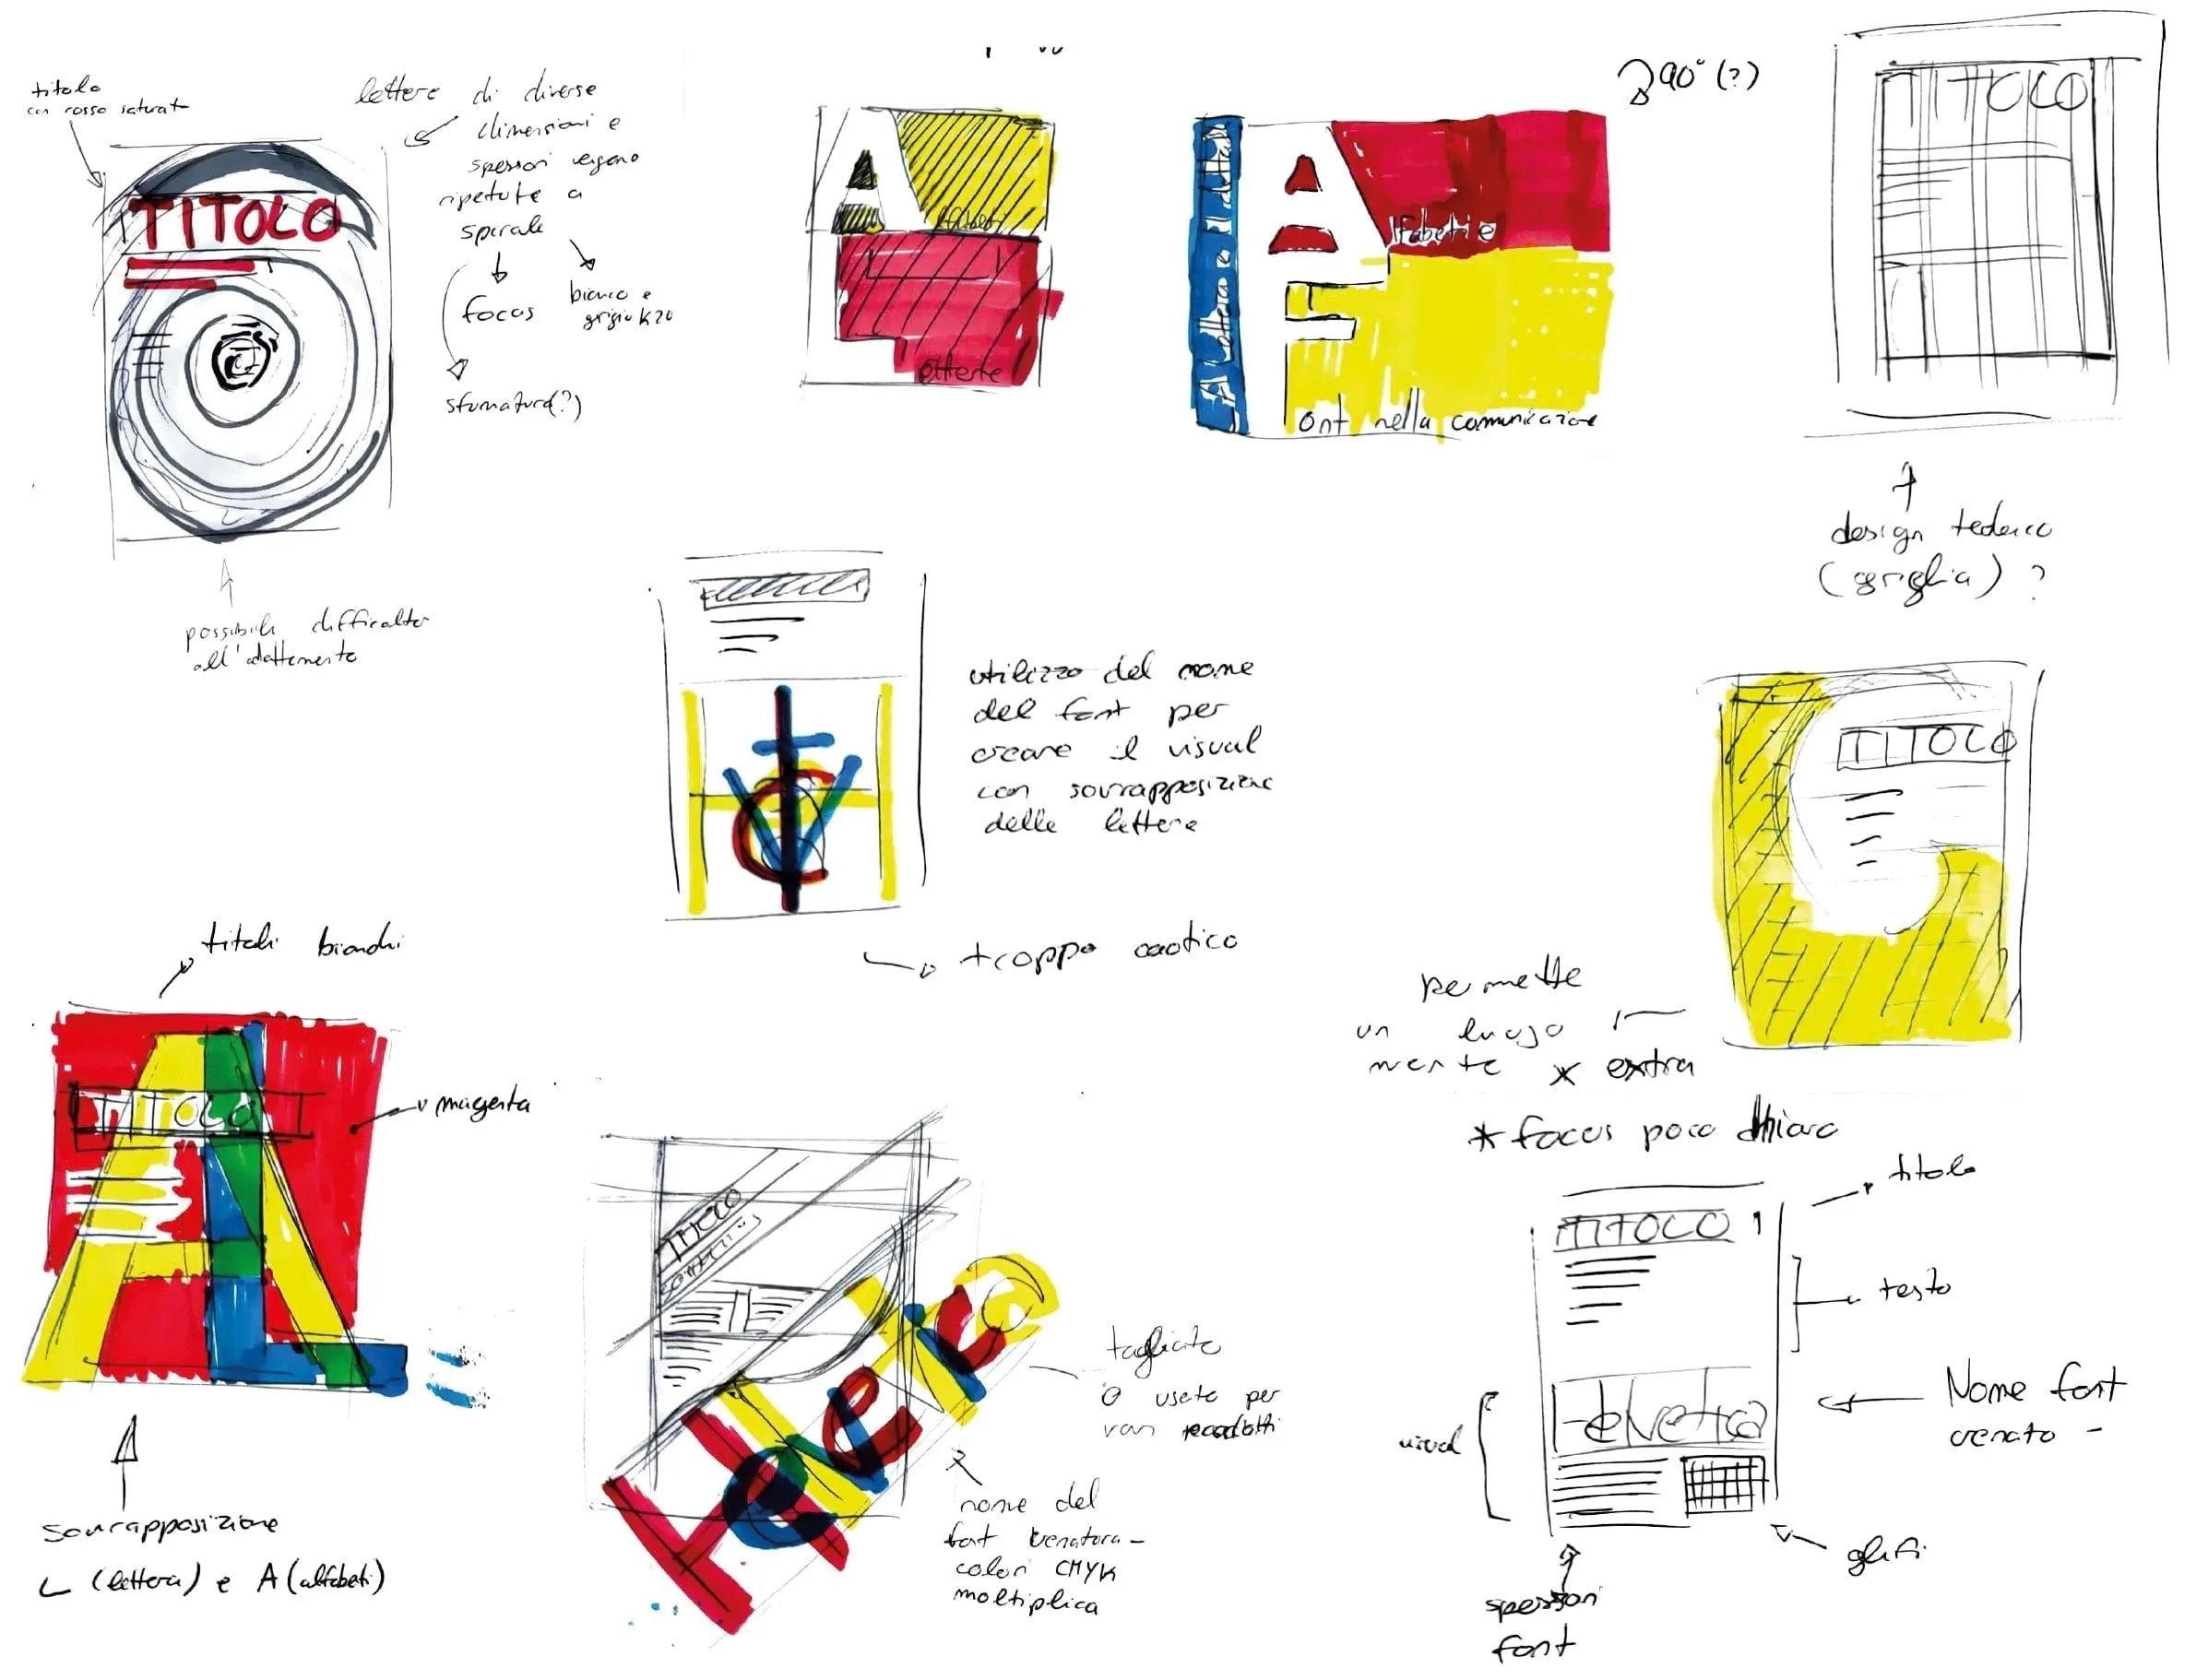 titolo
con rosso saturat
TITOLO
lettere di diverse
dimensioni e
spessori vengono
ripetute a
spirale
focus
bianco e
grigio k20
sfumatura(?)
possibili difficolta
all'adattamento
lfabeti
A lettera e i dettagli
lfabeti e
ont nella comunicazione
90° (?)
TITOLO
design tedesco
(griglia) ?
utilizzo del nome
del font per
creare il visual
con sovrapposizione
delle lettere
troppo caotico
TITOLO
permette
un
extra
* focus poco chiaro
titoli bianchi
TITOLO
magenta
sovrapposizione
L (lettera) e A (alfabeti)
TITOLO
Helvetica
tagliato
o usato per
vari prodotti
nome del
font
colori CMYK
moltiplica
TITOLO
titolo
testo
Nome font
Helvetica
visual
glifi
spessori
font